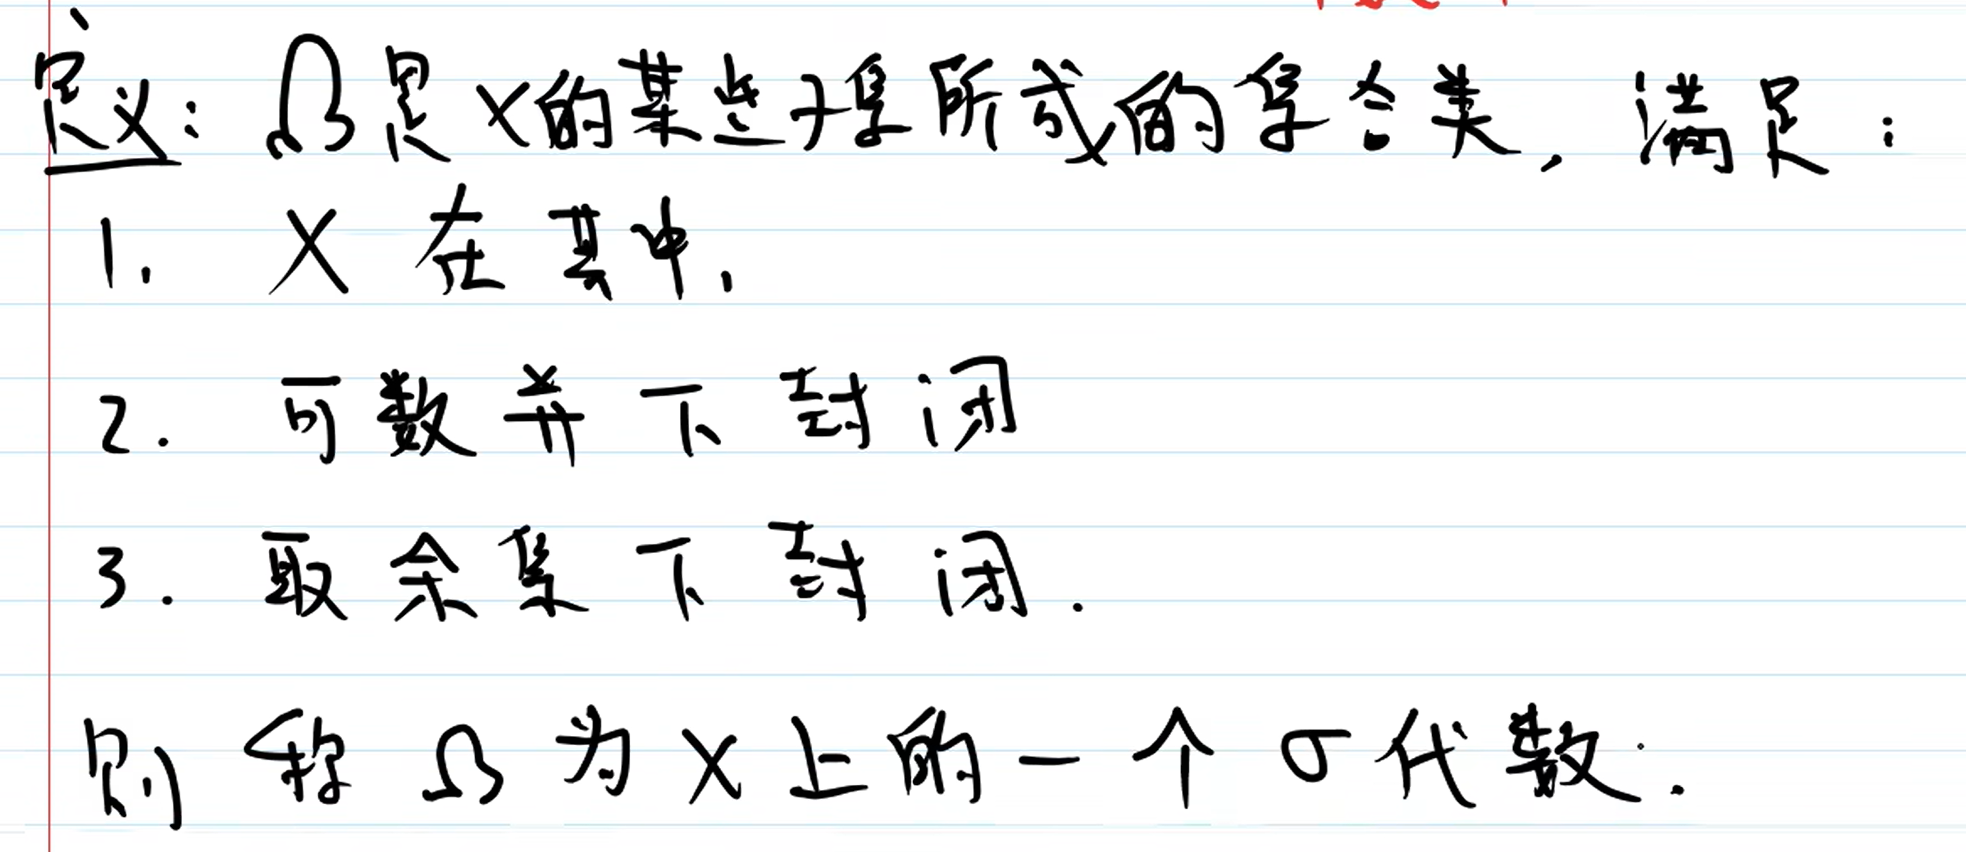 定义: Ω是X的某些子集所成的集合类, 满足:
1. X 在其中.
2. 可数并下封闭
3. 取余集下封闭.
则称Ω为X上的一个σ代数.